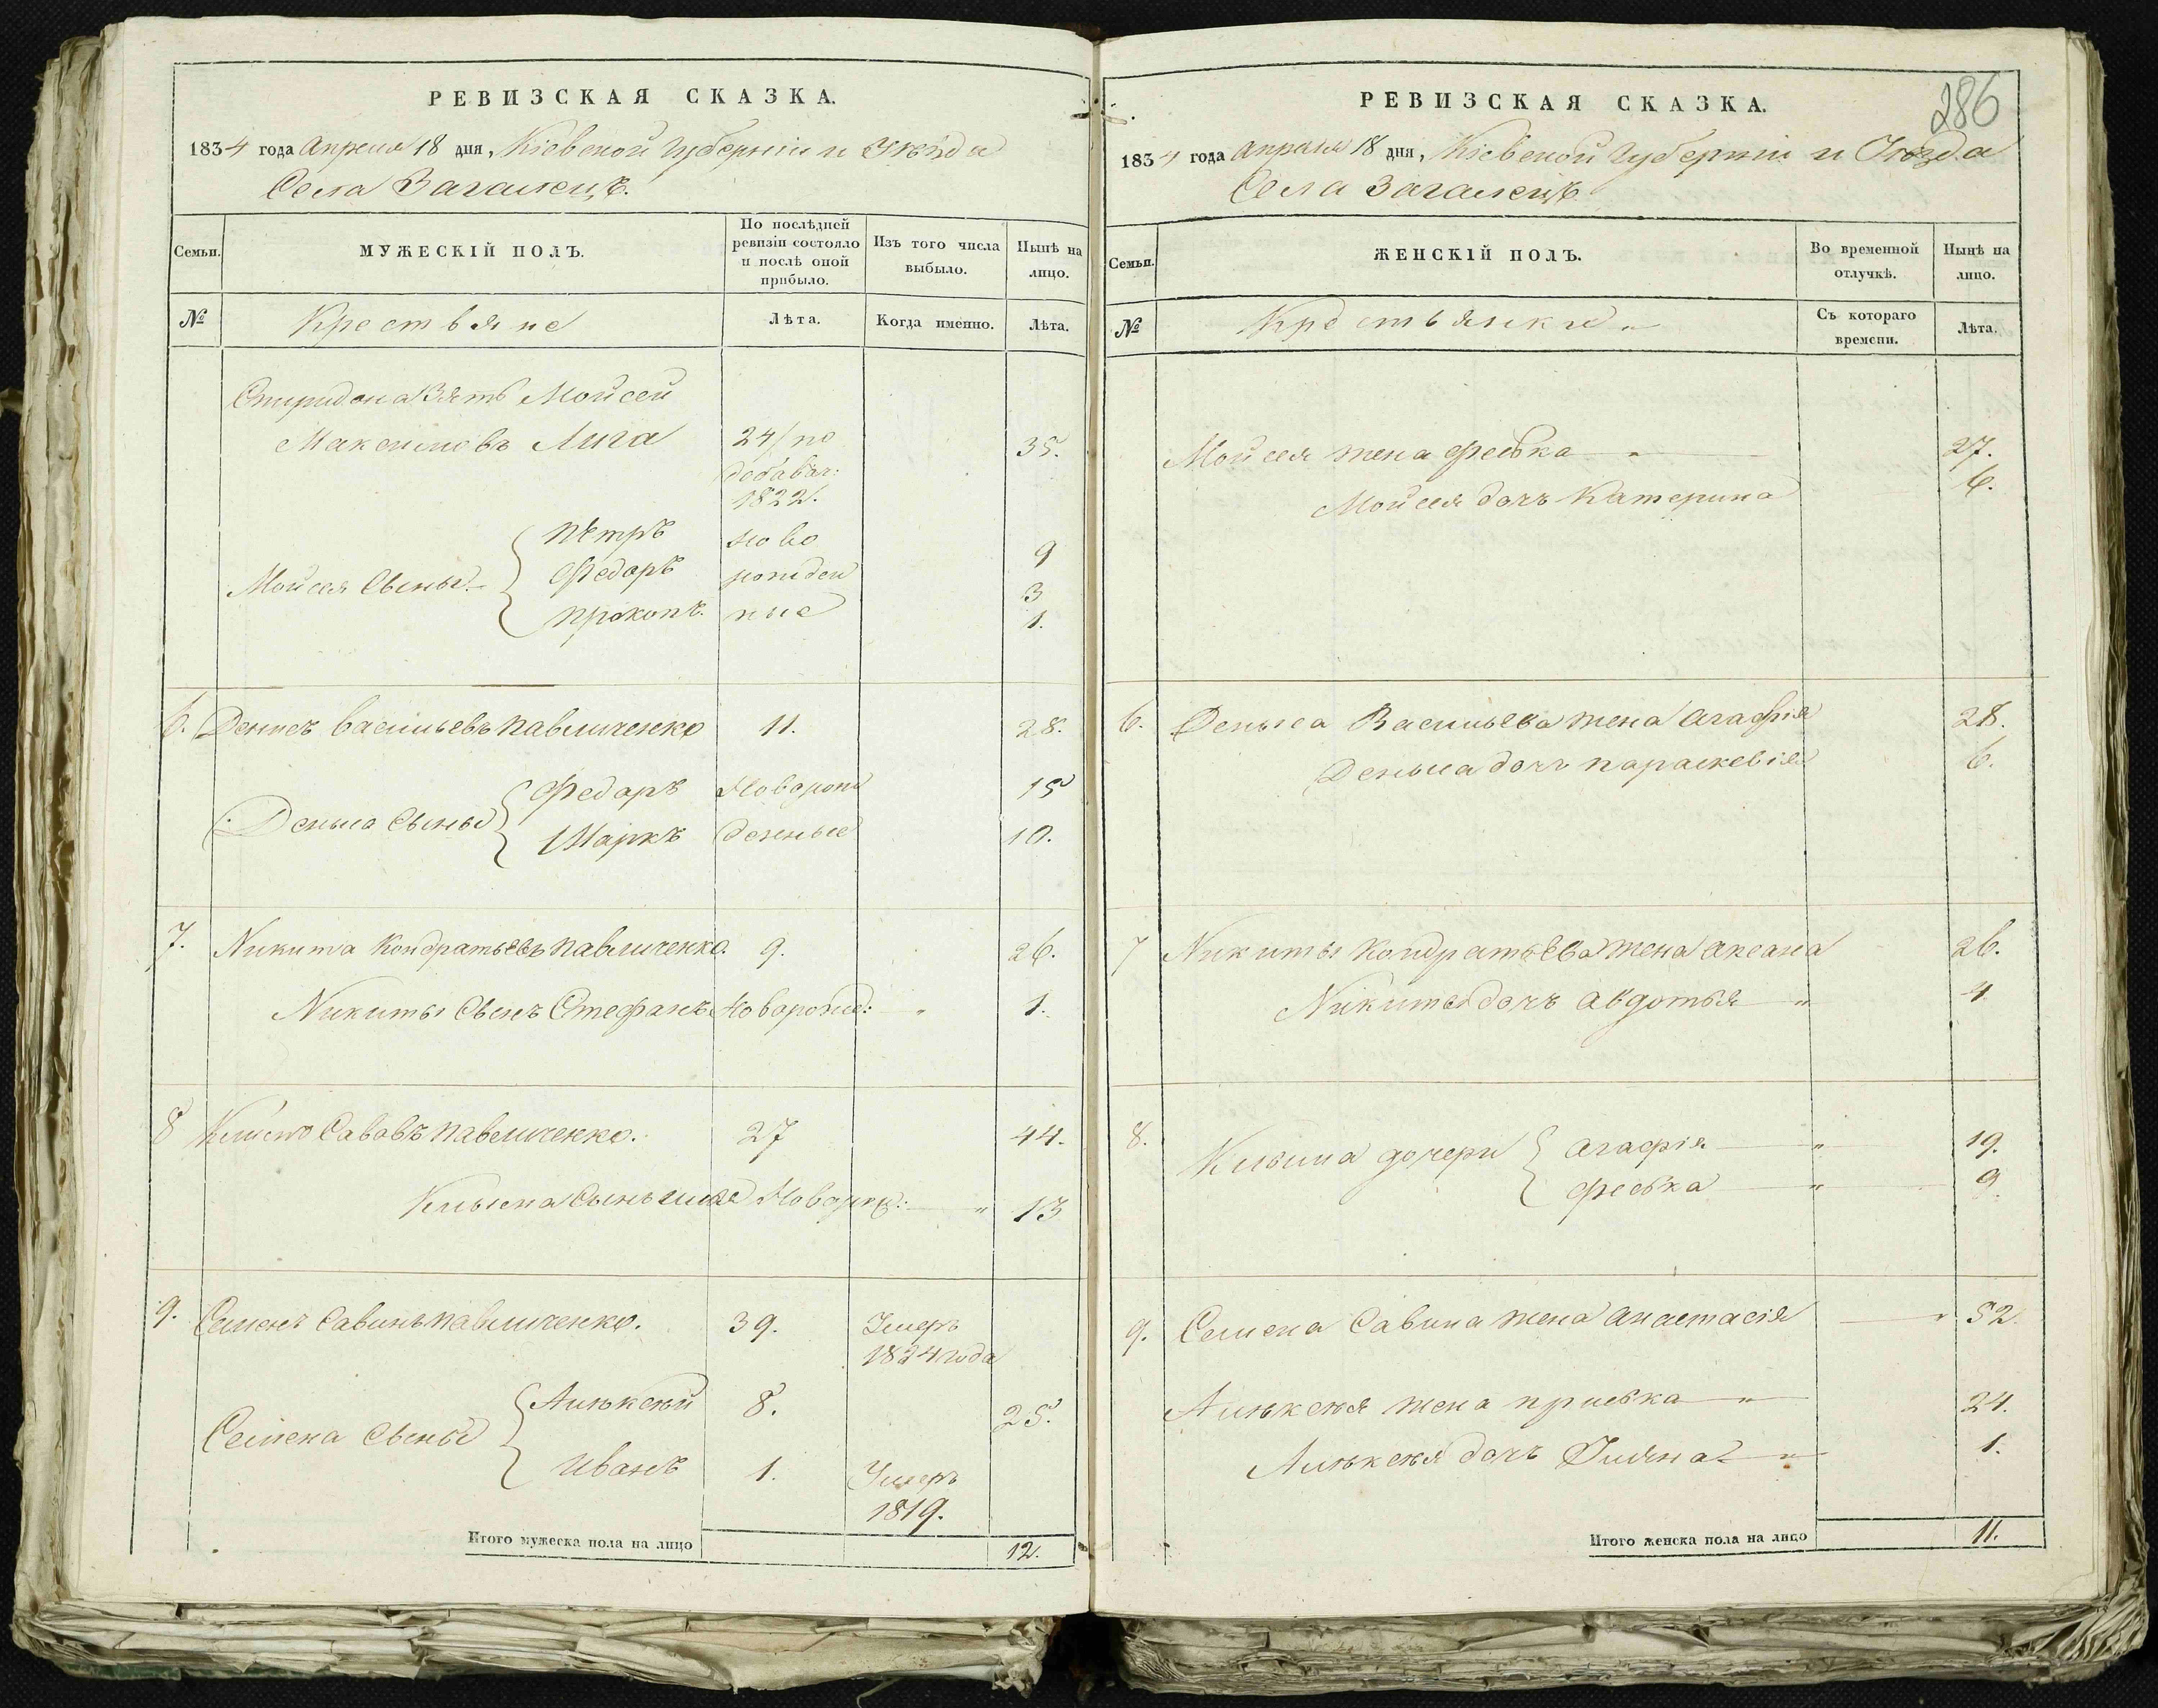 РЕВИЗСКАЯ СКАЗКА.
1834 года Апреля 18 дня, Кіевской Губерніи и Уѣзда
Села Загалецъ.
Семьи.
МУЖЕСКІЙ ПОЛЪ.
По послѣдней ревизіи состояло и послѣ оной прибыло.
Изъ того числа выбыло.
Нынѣ на лицо.
№
Крестьяне
Лѣта.
Когда именно.
Лѣта.
Спиридона Зять Мойсей
Максимовъ Лига 24/по 35.
добавач:
1822.
Мойсея Сыны
Петръ ново 9
Федоръ рожден 3
Прокопъ. ные 1.
6. Денисъ Васильевъ Павличенко 11. 28.
Дениса Сыны
Федоръ Новорож 15
Маркъ денные 10.
7. Никита Кондратьевъ Павличенко. 9. 26.
Никиты Сынъ Стефанъ Новорожд: " 1.
8 Климъ Савовъ Павличенко. 27 44.
Клима Сынъ Новорож: " 13
9. Семенъ Савинъ Павличенко. 39. Умеръ
1824 года
Семена Сыны
Алѣксѣй 8. 25.
Иванъ 1. Умеръ
1819.
Итого мужеска пола на лицо 12.
286
РЕВИЗСКАЯ СКАЗКА.
1834 года апреля 18 дня, Кіевской Губерніи и Уѣзда
Села Загалецъ
Семьи.
ЖЕНСКІЙ ПОЛЪ.
Во временной отлучкѣ.
Нынѣ на лицо.
№
Крестьянки "
Съ котораго времени.
Лѣта.
Мойсея жена Феська " 27.
Мойсея дочъ Катерина 6.
6. Дениса Васильева жена Агафія 28.
Дениса дочъ Параскевія 6.
7 Никиты Кондратьева жена Аксана 26.
Никиты дочъ Авдотья " 4
8. Клима дочери
Агафія " 19.
Феська " 9
9. Семена Савина жена Анастасія " 52.
Алѣксѣя жена Приська " 24.
Алѣксѣя дочъ Уліяна " 1.
Итого женска пола на лицо 11.